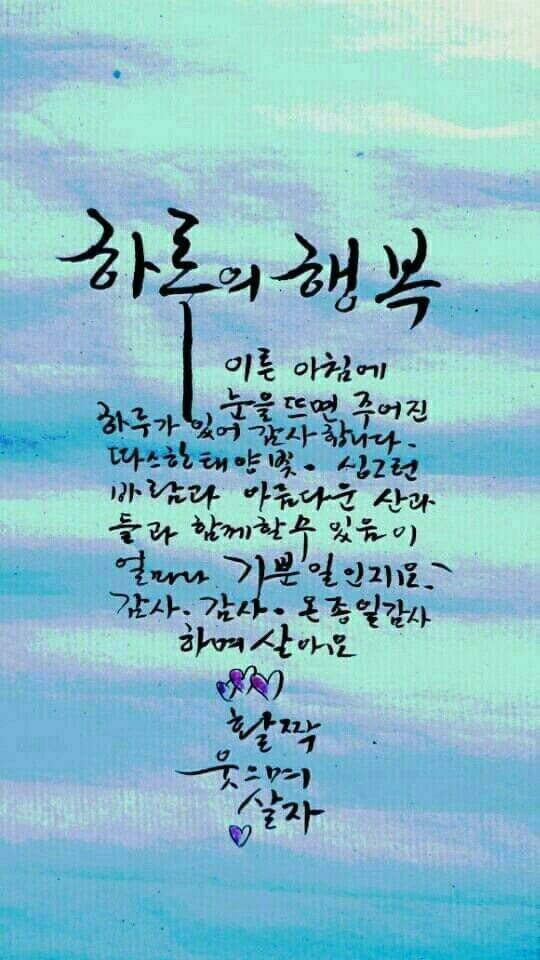 하루의 행복
이른 아침에
눈을 뜨면 주어진
하루가 있어 감사합니다.
따스한 태양빛. 싱그런
바람과 아름다운 산과
들과 함께할수 있음이
얼마나 기쁜일인지요.
감사. 감사. 온종일감사
하며 살아요
활짝
웃으며
살자